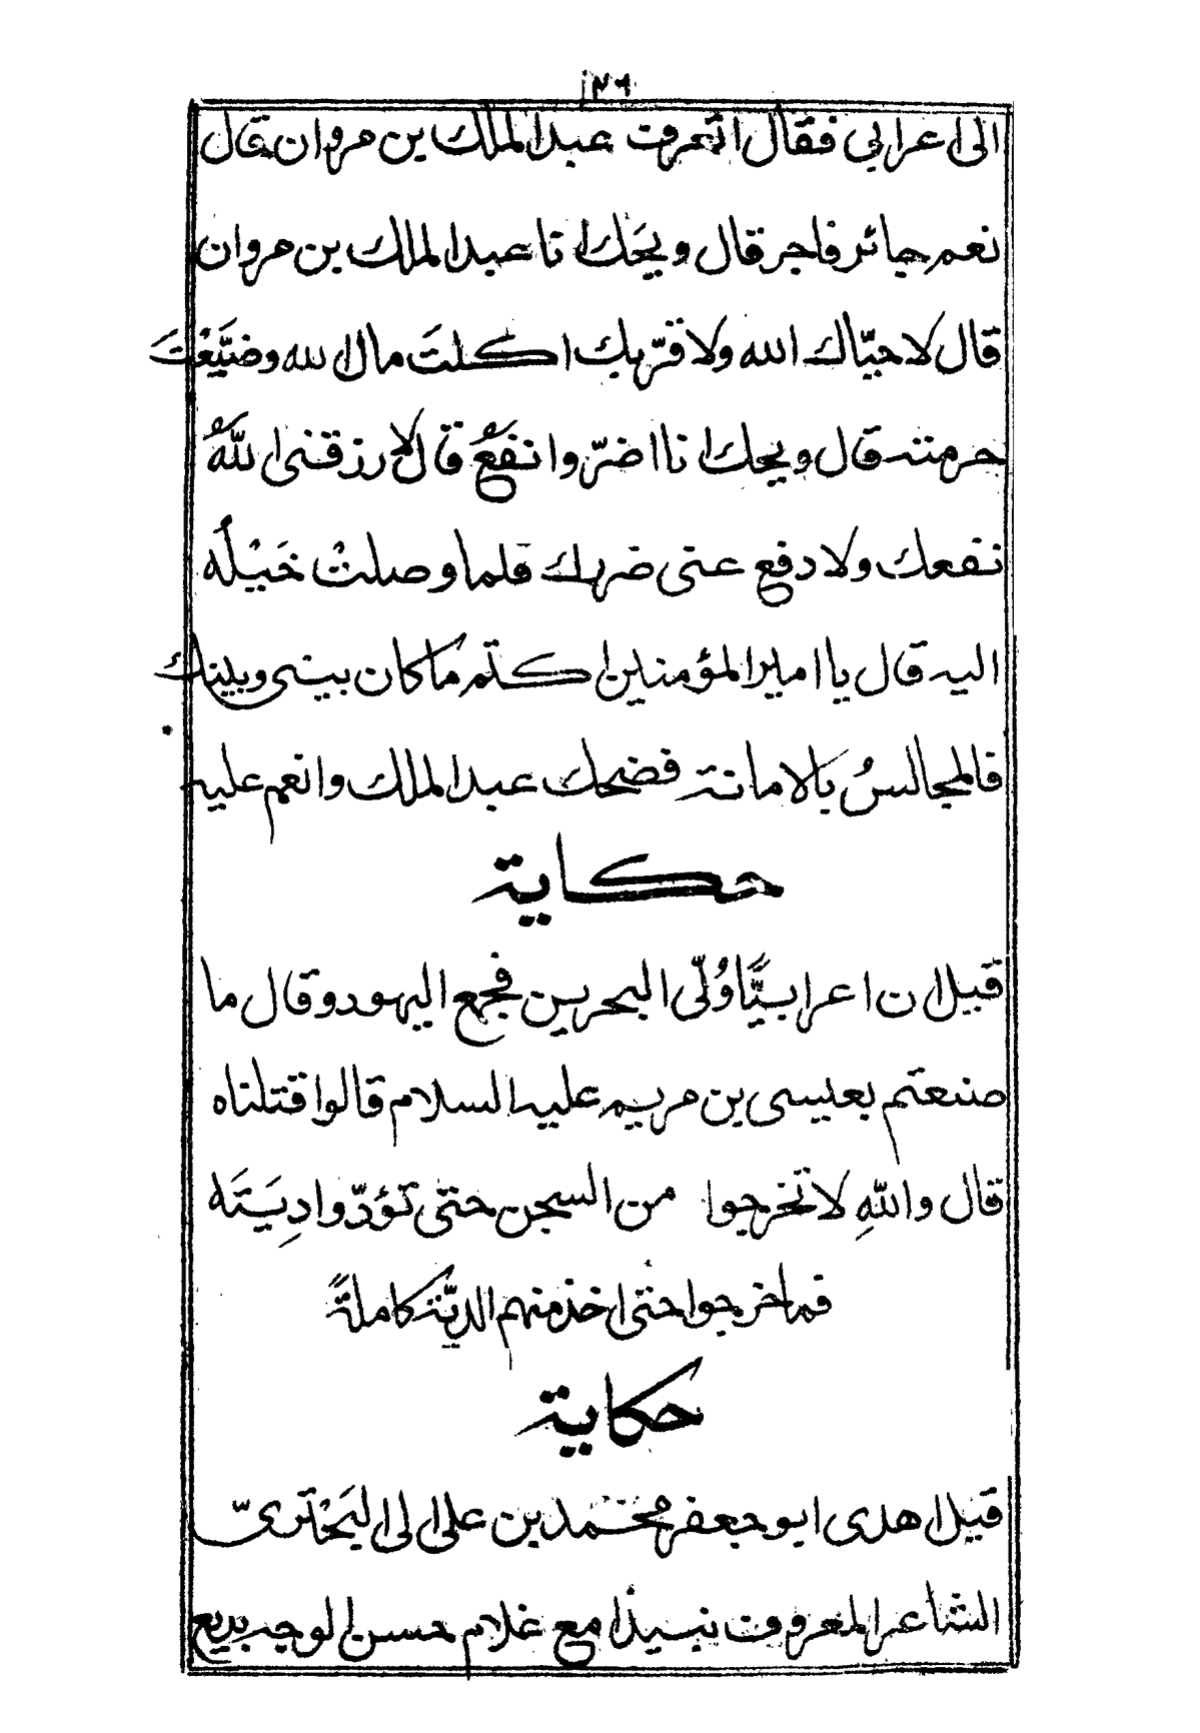 ١٢٦
الى اعرابي فقال اتعرف عبد الملك بن مروان قال
نعم جائر فاجر قال ويحَك انا عبد الملك بن مروان
قال لا حيّاك الله ولا قرّبك اكلتَ مال الله وضيَّعْتَ
حرمته قال ويحك انا اضرّ وانفعُ قال لا رزقنى اللّٰهُ
نفعك ولا دفع عنى ضربك فلما وصلتْ خَيْلُه
اليه قال يا امير المؤمنين اكتم ما كان بينى وبينك
فالمجالسُ بالامانة فضحك عبد الملك وانعم عليه
حكاية
قيل ان اعرابيًّا وُلّى البحرين فجمع اليهود وقال ما
صنعتم بعيسى بن مريم عليه السلام قالوا قتلناه
قال واللّهِ لا تخرجوا من السجن حتى تؤدّوا دِيَتَه
فما خرجوا حتى اخذ منهم الديّة كاملةً
حكاية
قيل اهدى ابو جعفر محمد بن على الى البَحْتَرىّ
الشاعر المعروف نبيذا مع غلام حسن الوجه بديع